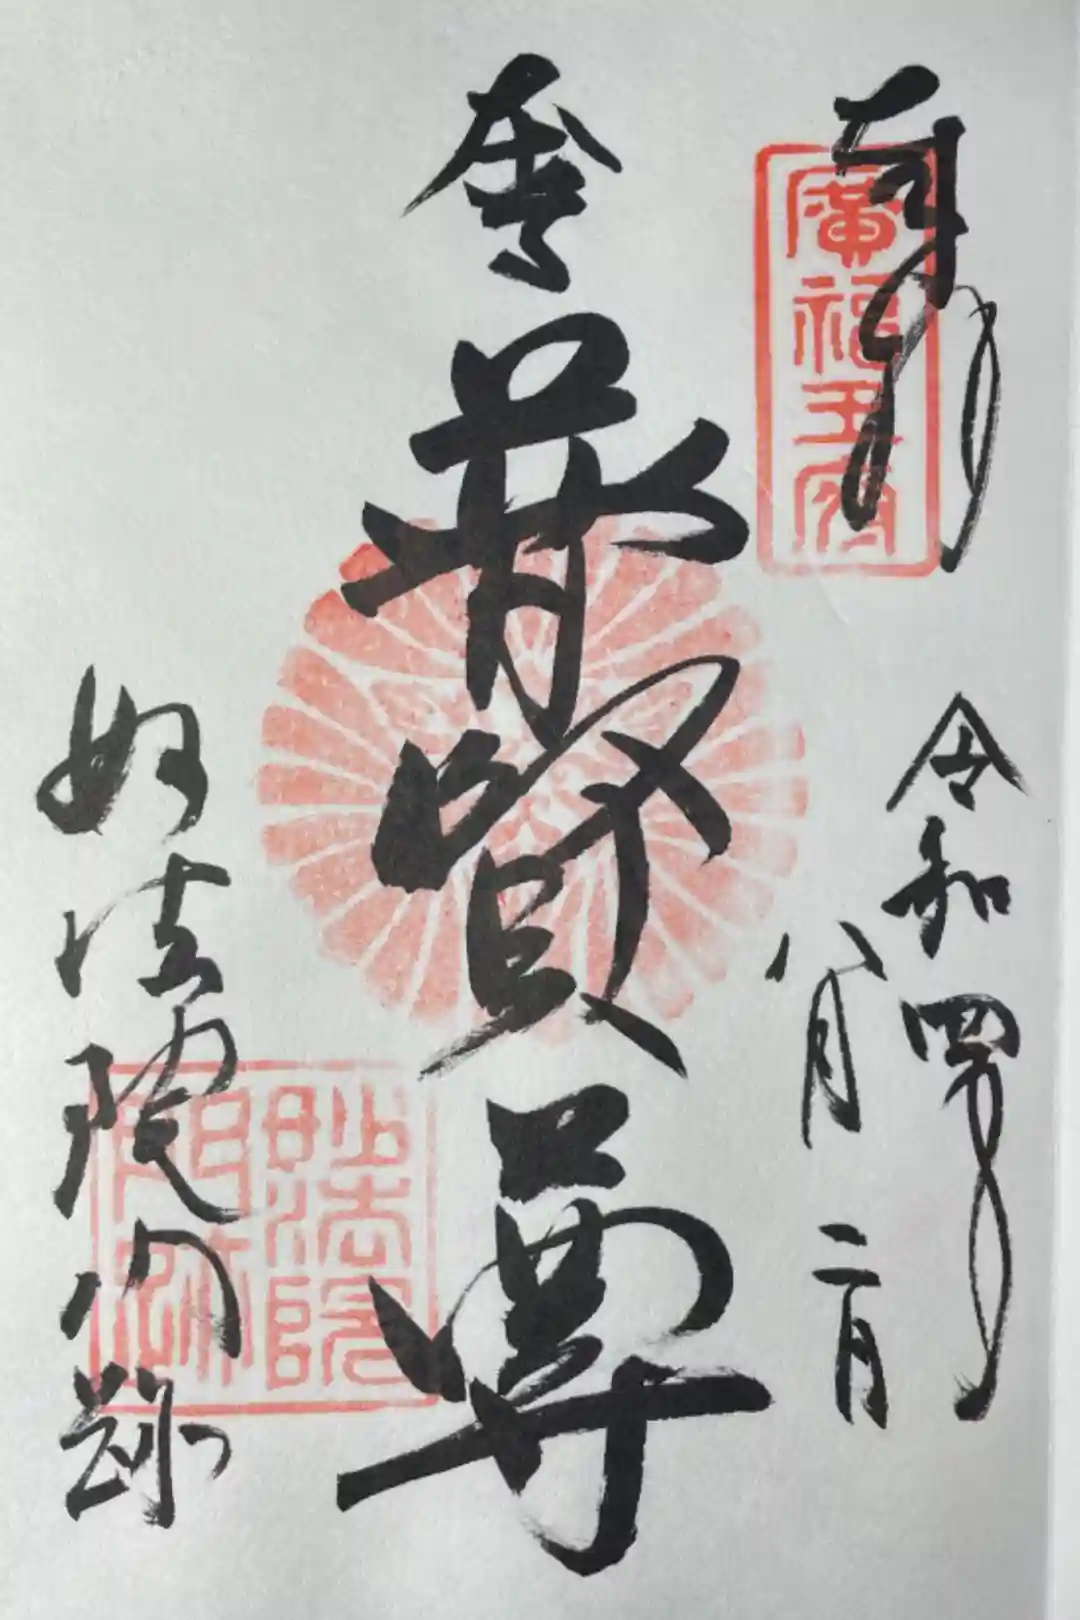 奉拝
廣福王府
令和四年
八月二日
普賢尊
妙法院
門跡
妙法院門跡